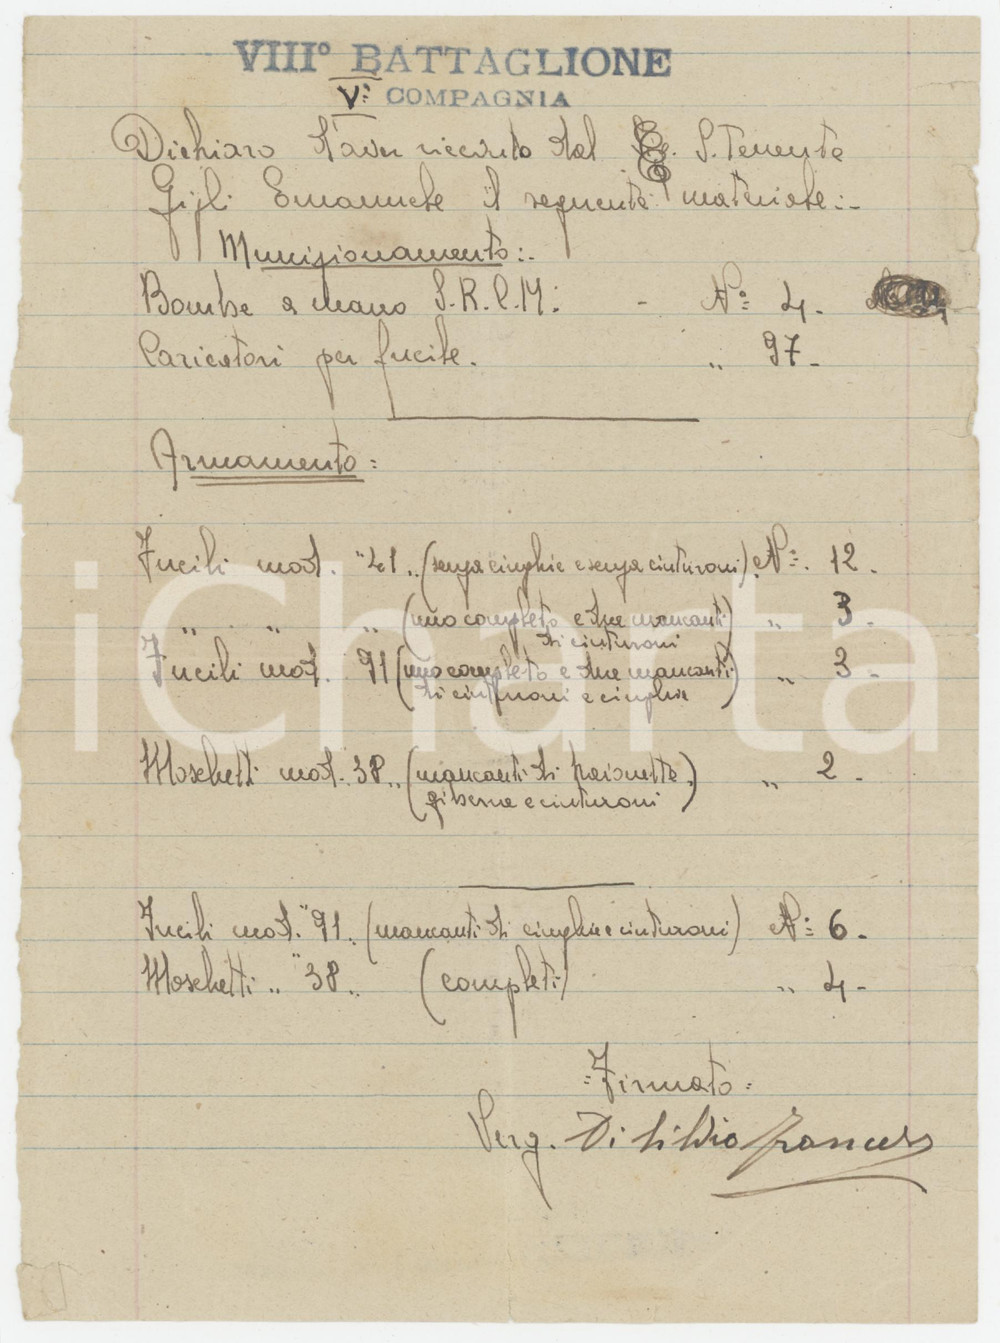 VIII° BATTAGLIONE
V: COMPAGNIA
Dichiaro d'aver ricevuto dal S. Tenente
Gigli Emanuele il seguente materiale:-
Munizionamento:-
Bombe a mano S.R.C.M: - N°= 4.
Caricatori per fucile. " 97-
Armamento:
Fucili mod. "41" (senza cinghie e senza cinturoni) N°=. 12.
" " " (uno completo e due mancanti " 3.
di cinturoni)
Fucili mod. 91 (uno completo e due mancanti " 3-
di cinturoni e cinghie)
Moschetti mod. 38" (mancanti di baionette " 2-
giberne e cinturoni)
Fucili mod. "91" (mancanti di cinghie e cinturoni) N°= 6.
Moschetti " "38" (completi) " 4-
=Firmato=
Serg. Di Silvio Francesco
iCharta